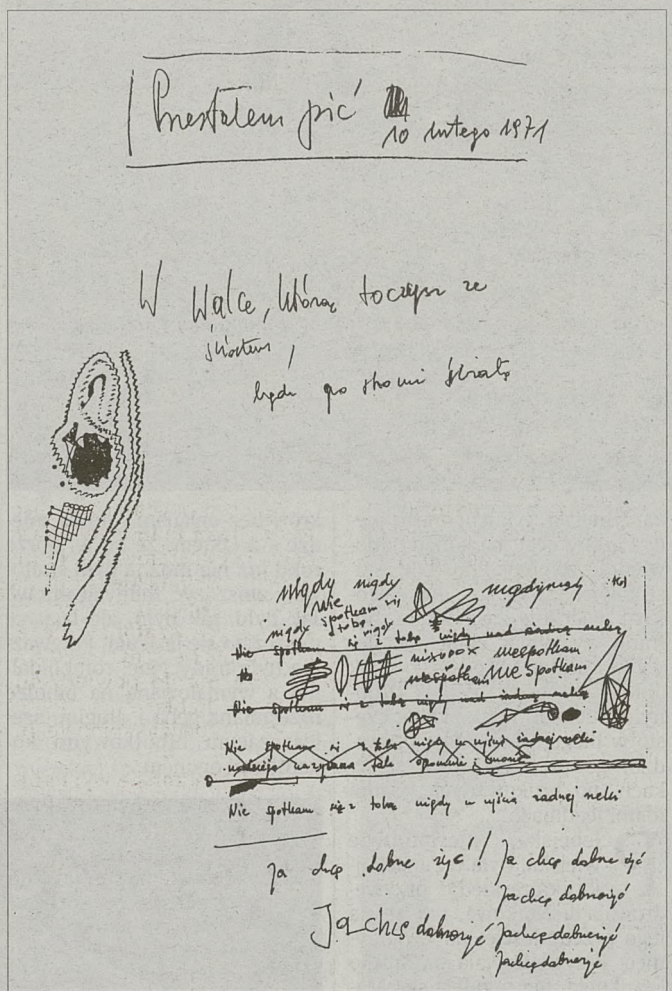 Przestałem pić
10 lutego 1971
W walce, którą toczysz ze
światem,
bądź po stronie świata
nigdy nigdy
nigdynigdy
nie
nigdy spotkam się
z tobą
Nie spotkam się z tobą nigdy nad żadną rzeką
niespotkam
niespotkam nie spotkam
Nie spotkam się z tobą nigdy nad żadną rzeką
Nie spotkam się z tobą nigdy w ujściu żadnej rzeki
nazywana tak
Nie spotkam się z tobą nigdy w ujściu żadnej rzeki
Ja chcę dobrze żyć! Ja chcę dobrze żyć
Ja chcę dobrzeżyć
Ja chcę dobrzeżyć Jachcędobrzeżyć
Jachcędobrzeżyć